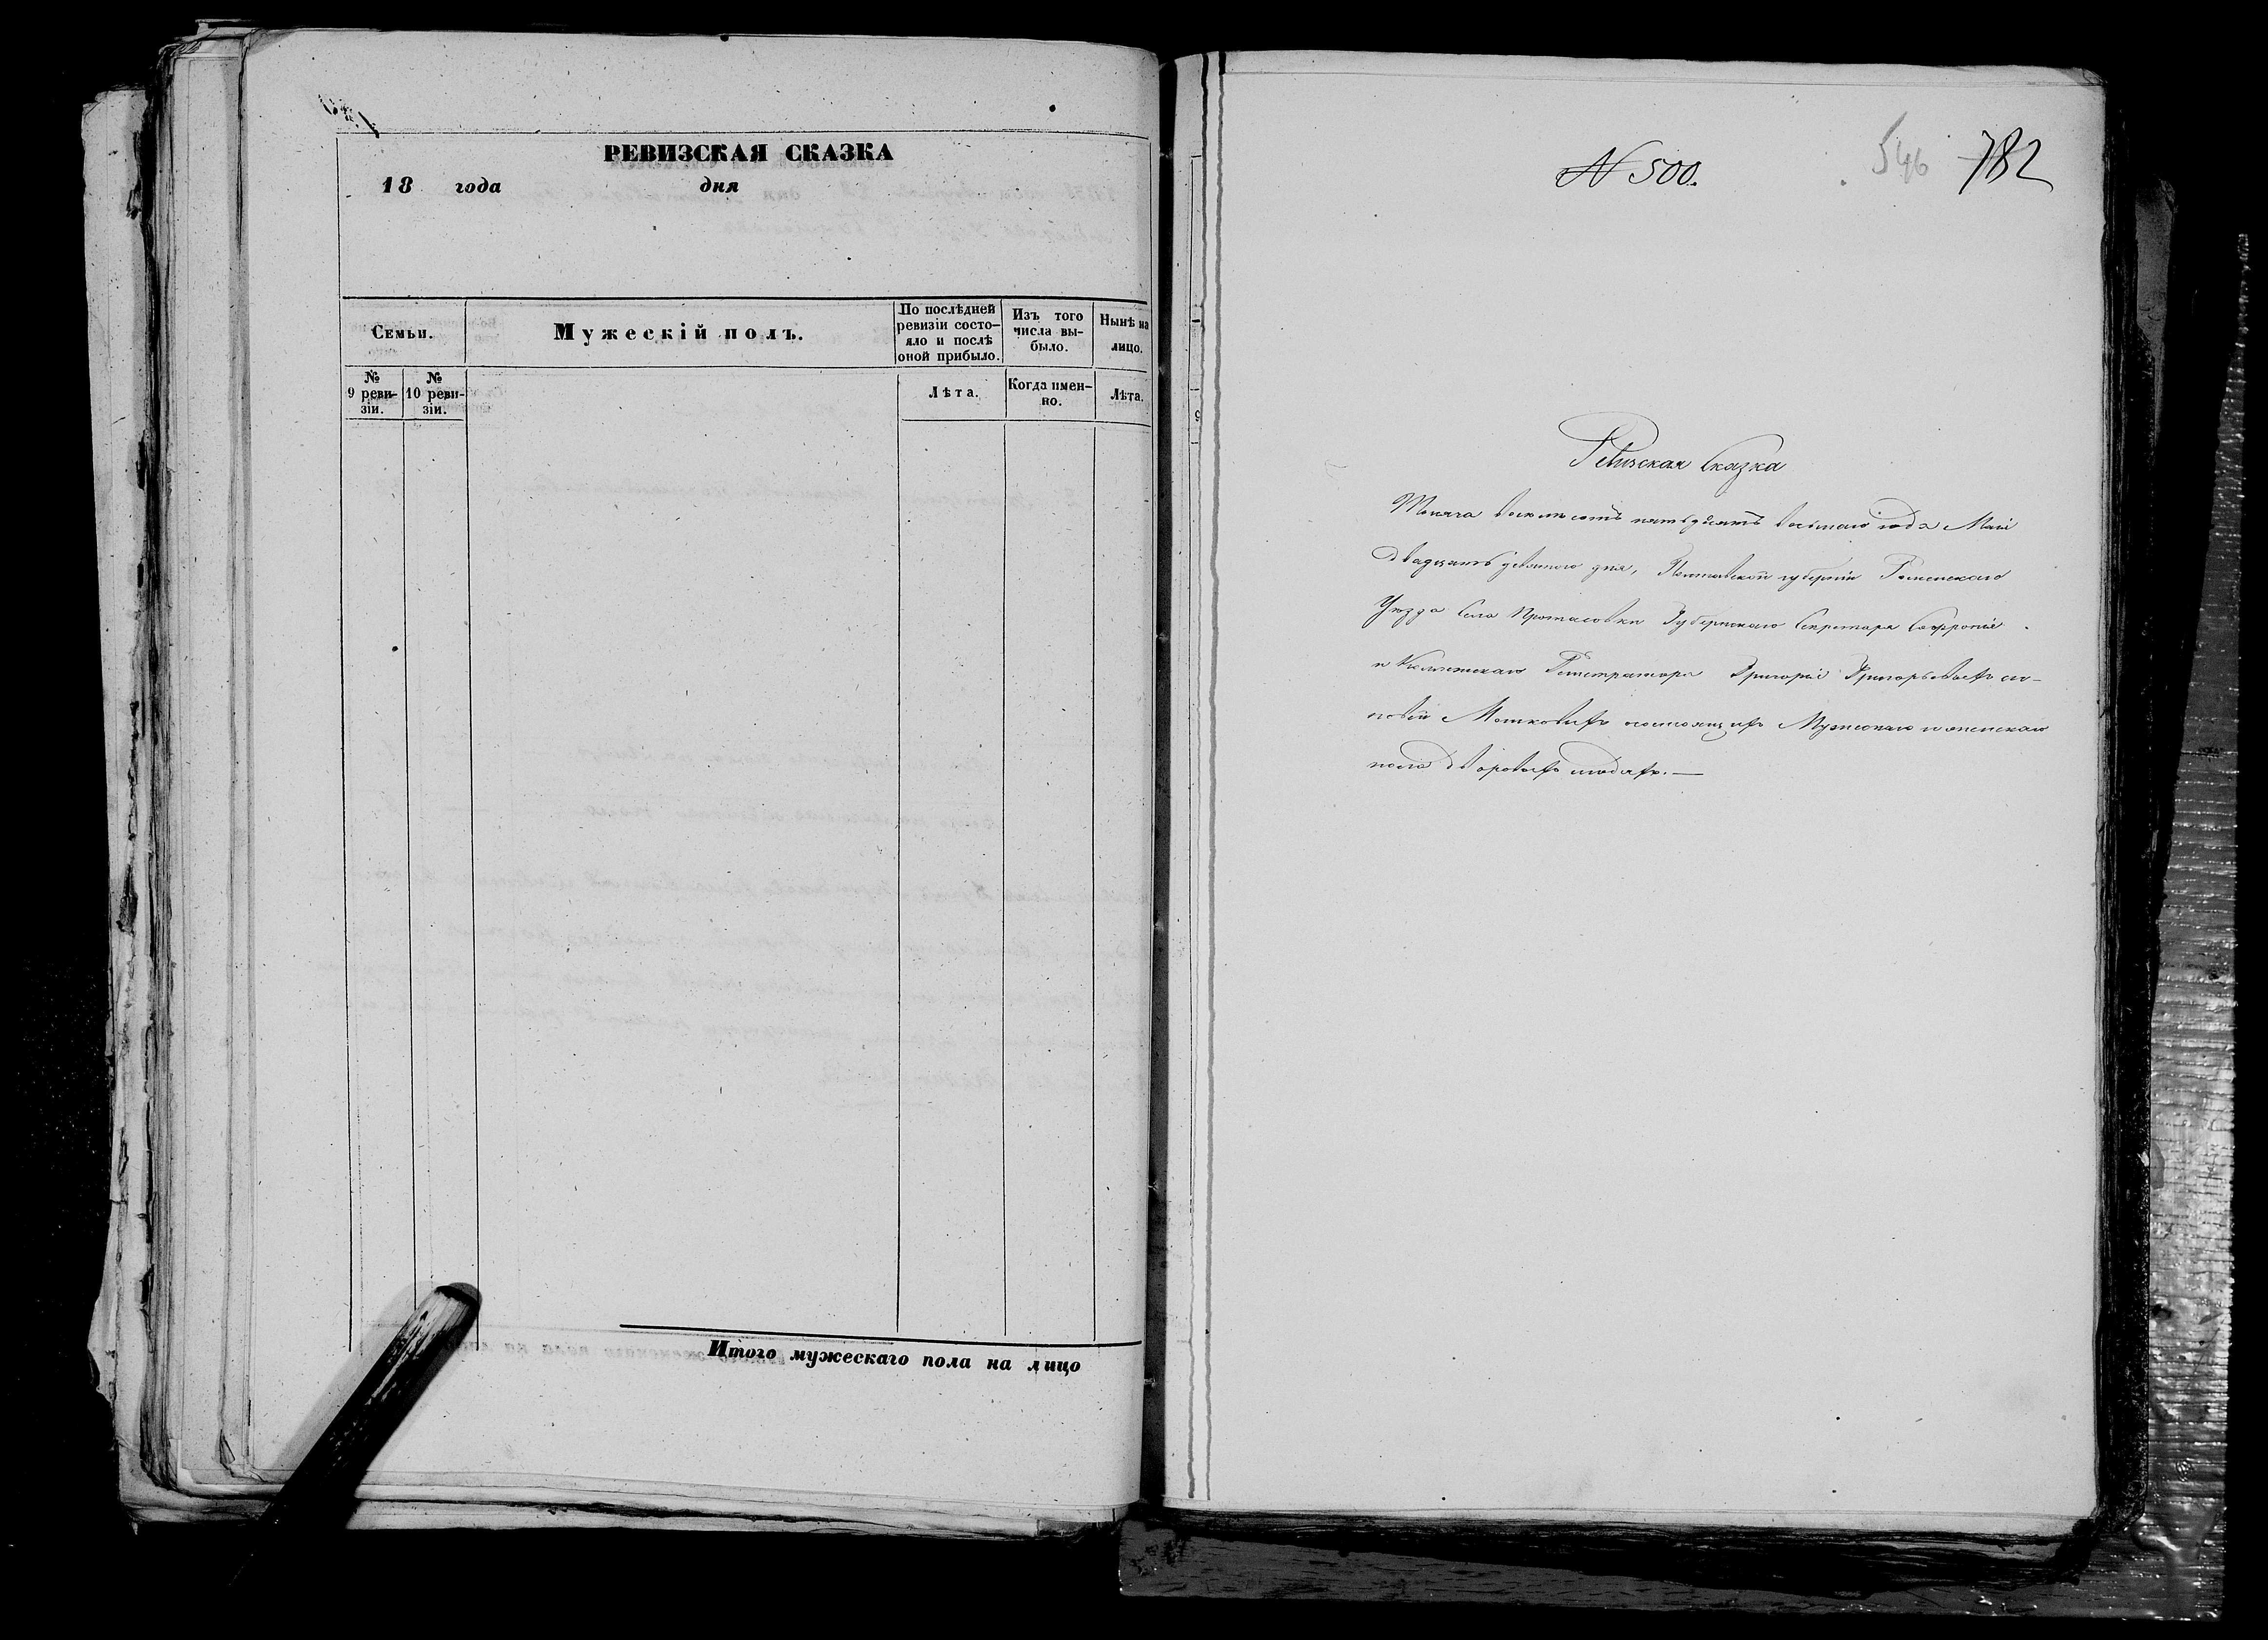 РЕВИЗСКАЯ СКАЗКА
18 года дня
Семьи.
Мужескій полъ.
По послѣдней ревизіи состо-
яло и послѣ оной прибыло.
Изъ того числа вы-
было.
Нынѣ на лицо.
№ 9 реви-
зіи.
№ 10 реви-
зіи.
Лѣта.
Когда имен-
но.
Лѣта.
Итого мужескаго пола на лицо
N 500.
546 782
Ревизская Сказка
Тысяча восемьсотъ пятьдесятъ восьмаго года Маія
двадцать девятого дня, Полтавской губерніи Роменскаго
Уѣзда Села Протасовки Губернскаго Секретаря Софронія
и Коллежскаго Регистратора Григорія Григорьевыхъ сы-
новей состоящихъ Мужескаго и женскаго
пола дворовыхъ людяхъ. —